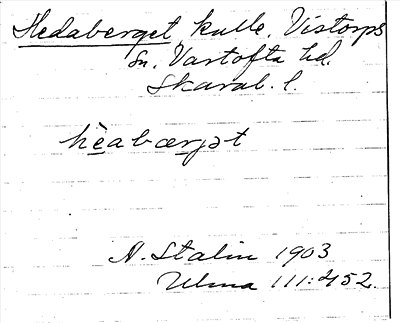 Hedaberget kulle, Vistorps
sn. Vartofta hd.
Skarab. l.
hèabærjət
N. Stalin 1903
Ulma 111:452.